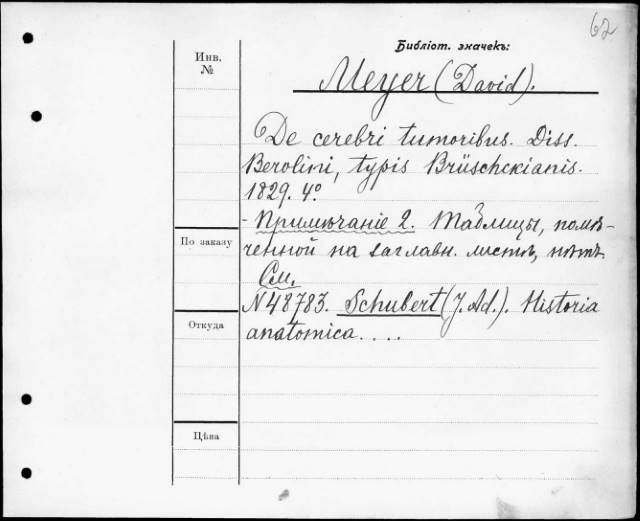 62
Библіот. значекъ:
Инв.
№
Meyer (David).
De cerebri tumoribus. Diss.
Berolini, typis Brüschckianis.
1829. 4°.
- Примѣчаніе 2. Таблицы, помѣ-
ченной на заглавн. листѣ, нѣтъ.
По заказу
См.
N 48783. Schubert (J. Ad.). Historia
Откуда
anatomica....
Цѣна